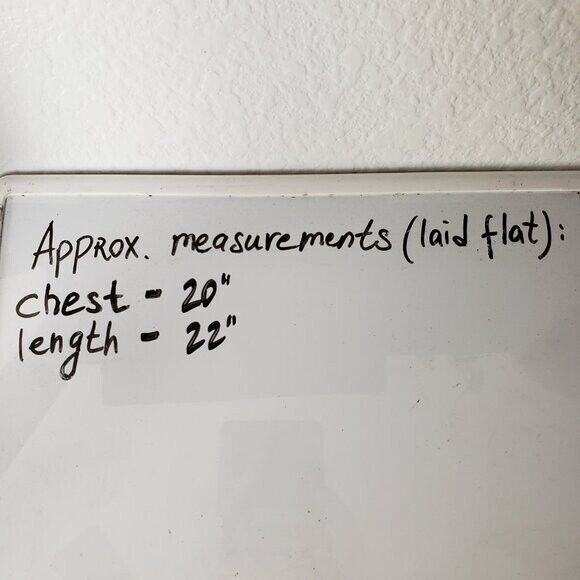 Approx. measurements (laid flat):
chest - 20"
length - 22"